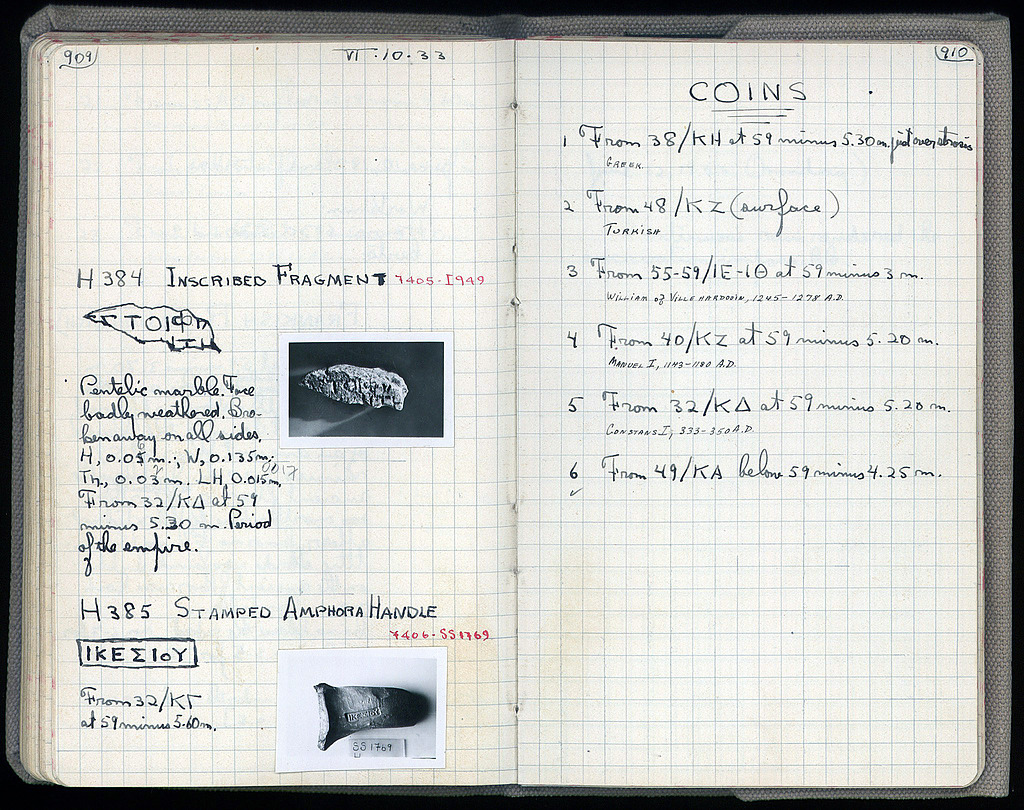 909
VI·10·33
H 384 INSCRIBED FRAGMENT 7405·I949
ΤΟΙΦ
ΙΤΗ
Pentelic marble. Face
badly weathered. Bro-
ken away on all sides.
H, 0.05 m.; W, 0.135 m;
Th., 0.03 m. LH, 0.015 m,
0017
From 32/ΚΔ at 59
minus 5.30 m. Period
of the empire.
H 385 STAMPED AMPHORA HANDLE
7406·SS1769
ΙΚΕΣΙΟΥ
From 32/ΚΓ
at 59 minus 5.60 m.
SS 1769
910
COINS
1 From 38/ΚΗ at 59 minus 5.30 m. just over strosis
GREEK.
2 From 48/ΚΖ (surface)
TURKISH
3 From 55-59/ΙΕ-ΙΘ at 59 minus 3 m.
WILLIAM of VILLEHARDOUIN, 1245-1278 A.D.
4 From 40/ΚΖ at 59 minus 5.20 m.
MANUEL I, 1143-1180 A.D.
5 From 32/ΚΔ at 59 minus 5.20 m.
CONSTANS I, 333-350 A.D.
6 From 49/ΚΑ below 59 minus 4.25 m.
✓